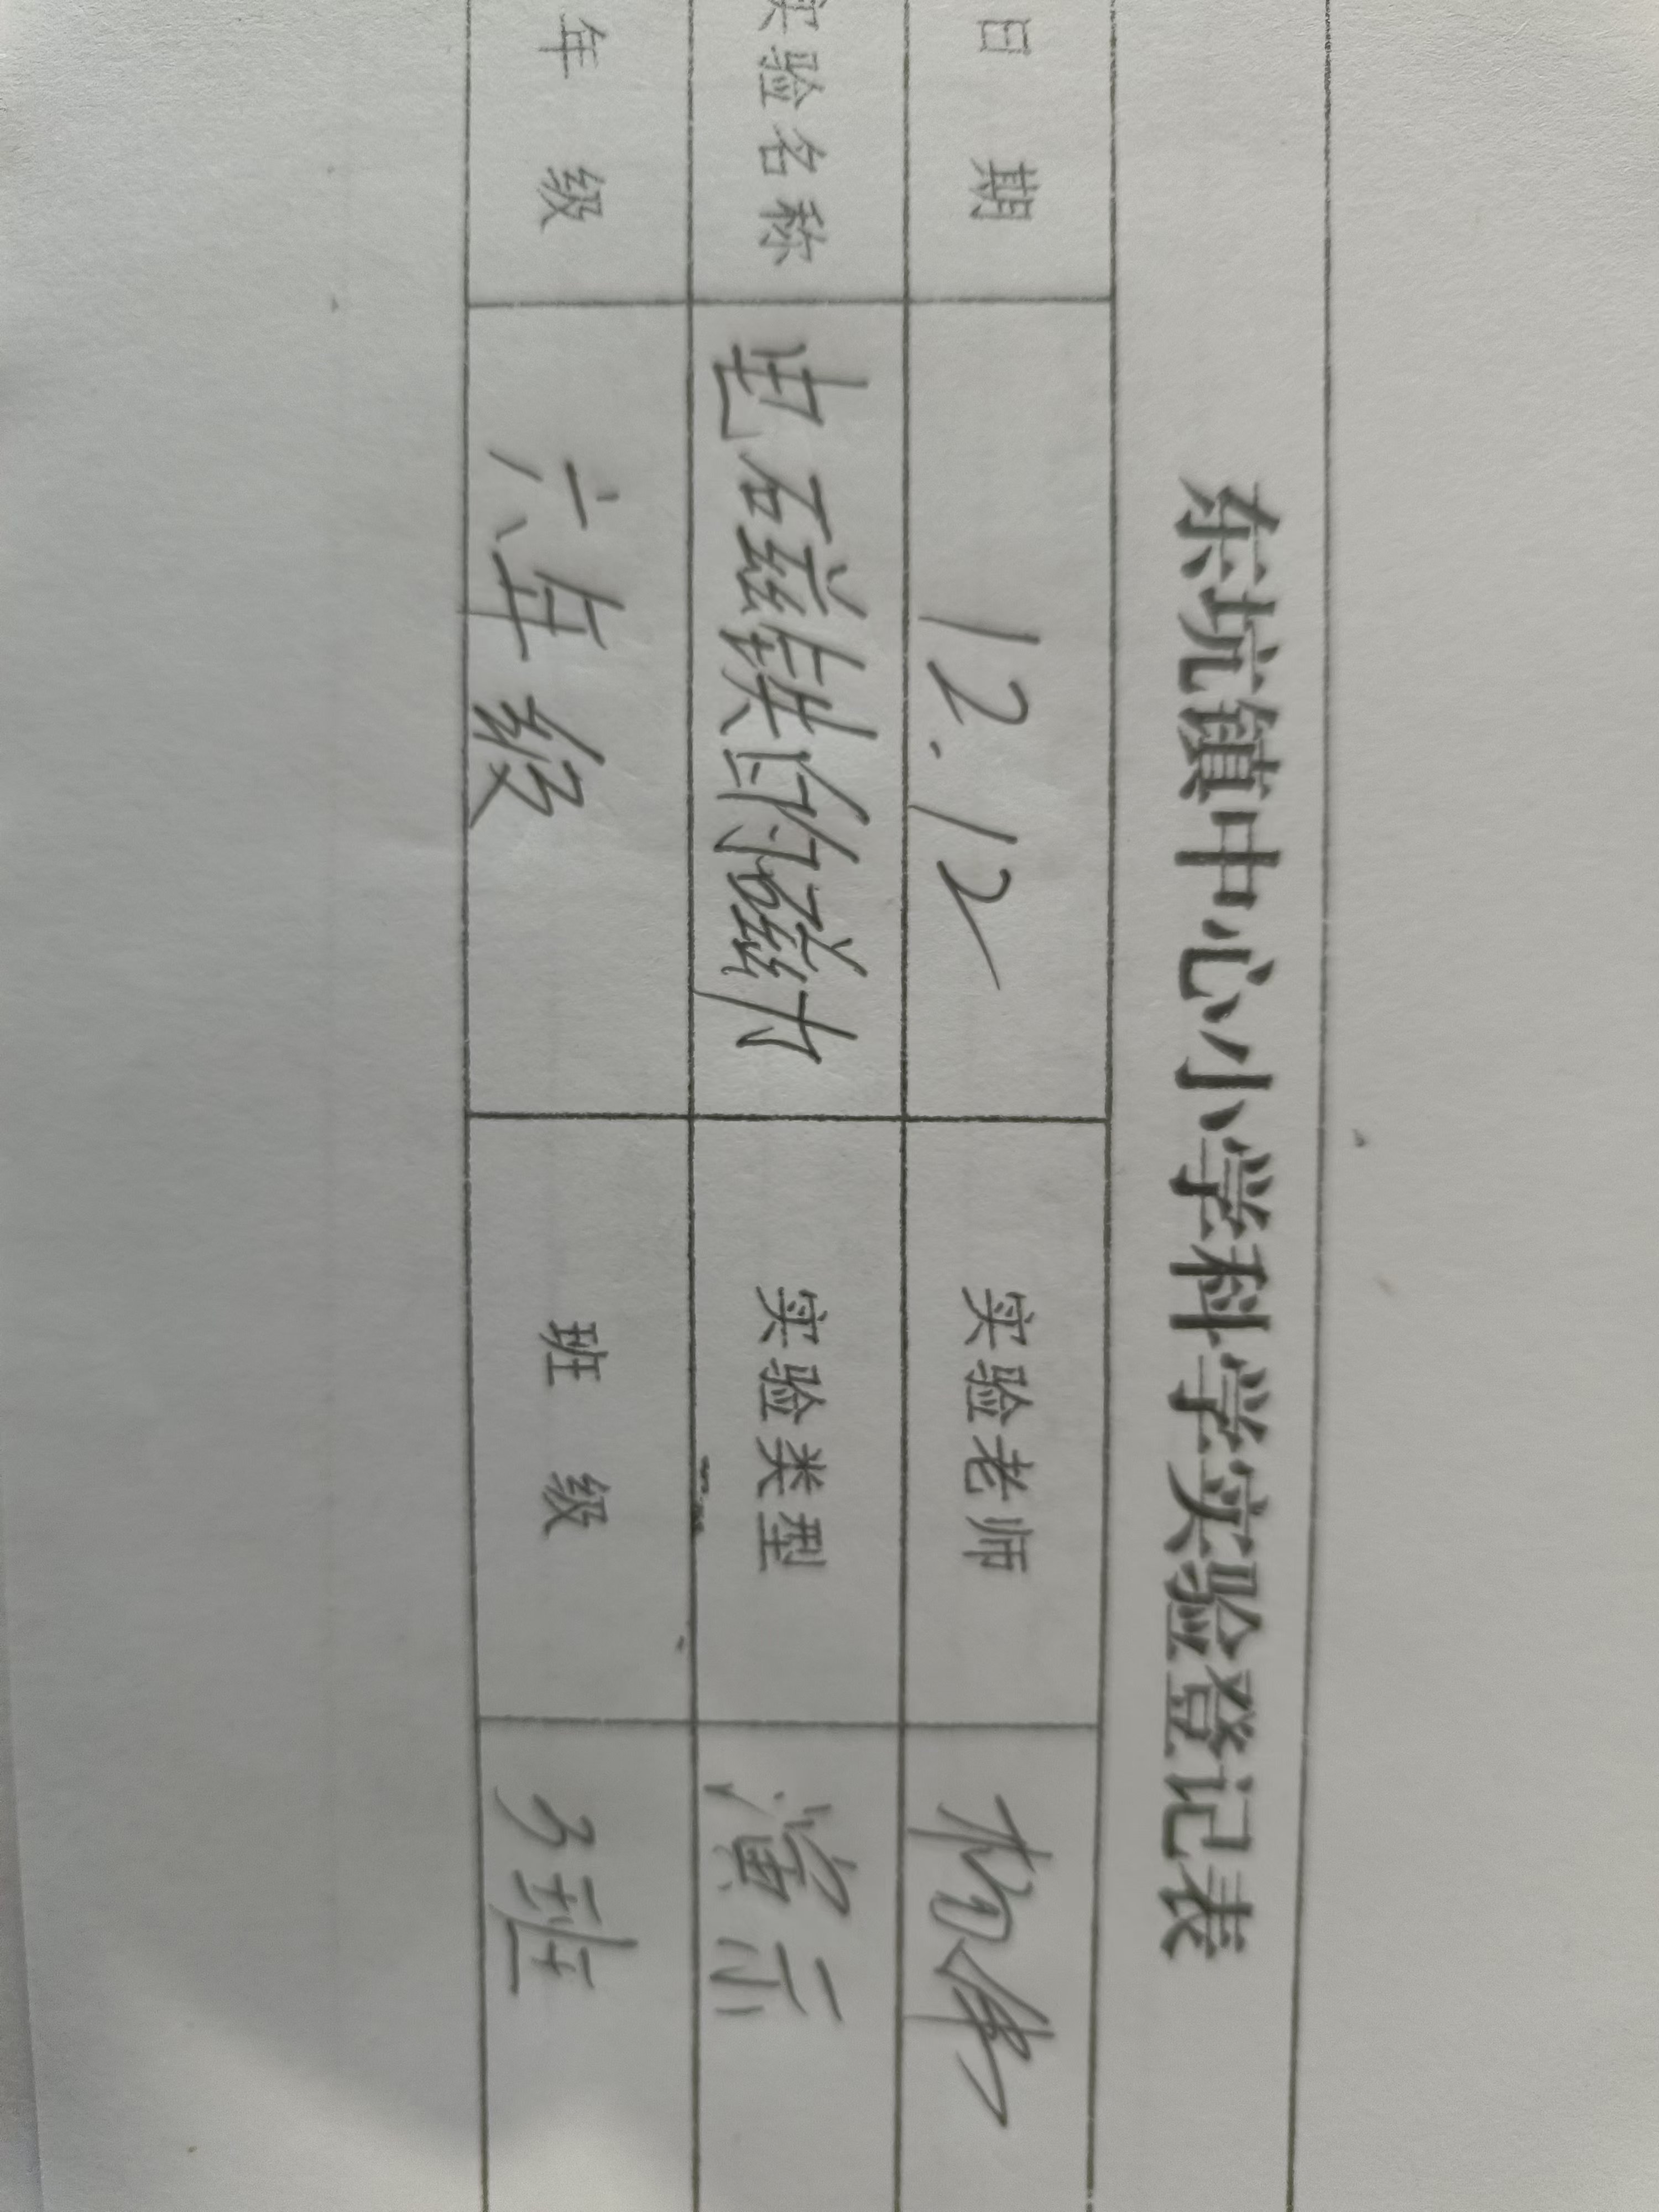 东坑镇中心小学科学实验登记表
日 期 12.12 实验老师 杨
实验名称 电磁铁的磁力 实验类型 演示
年 级 六年级 班 级 3班